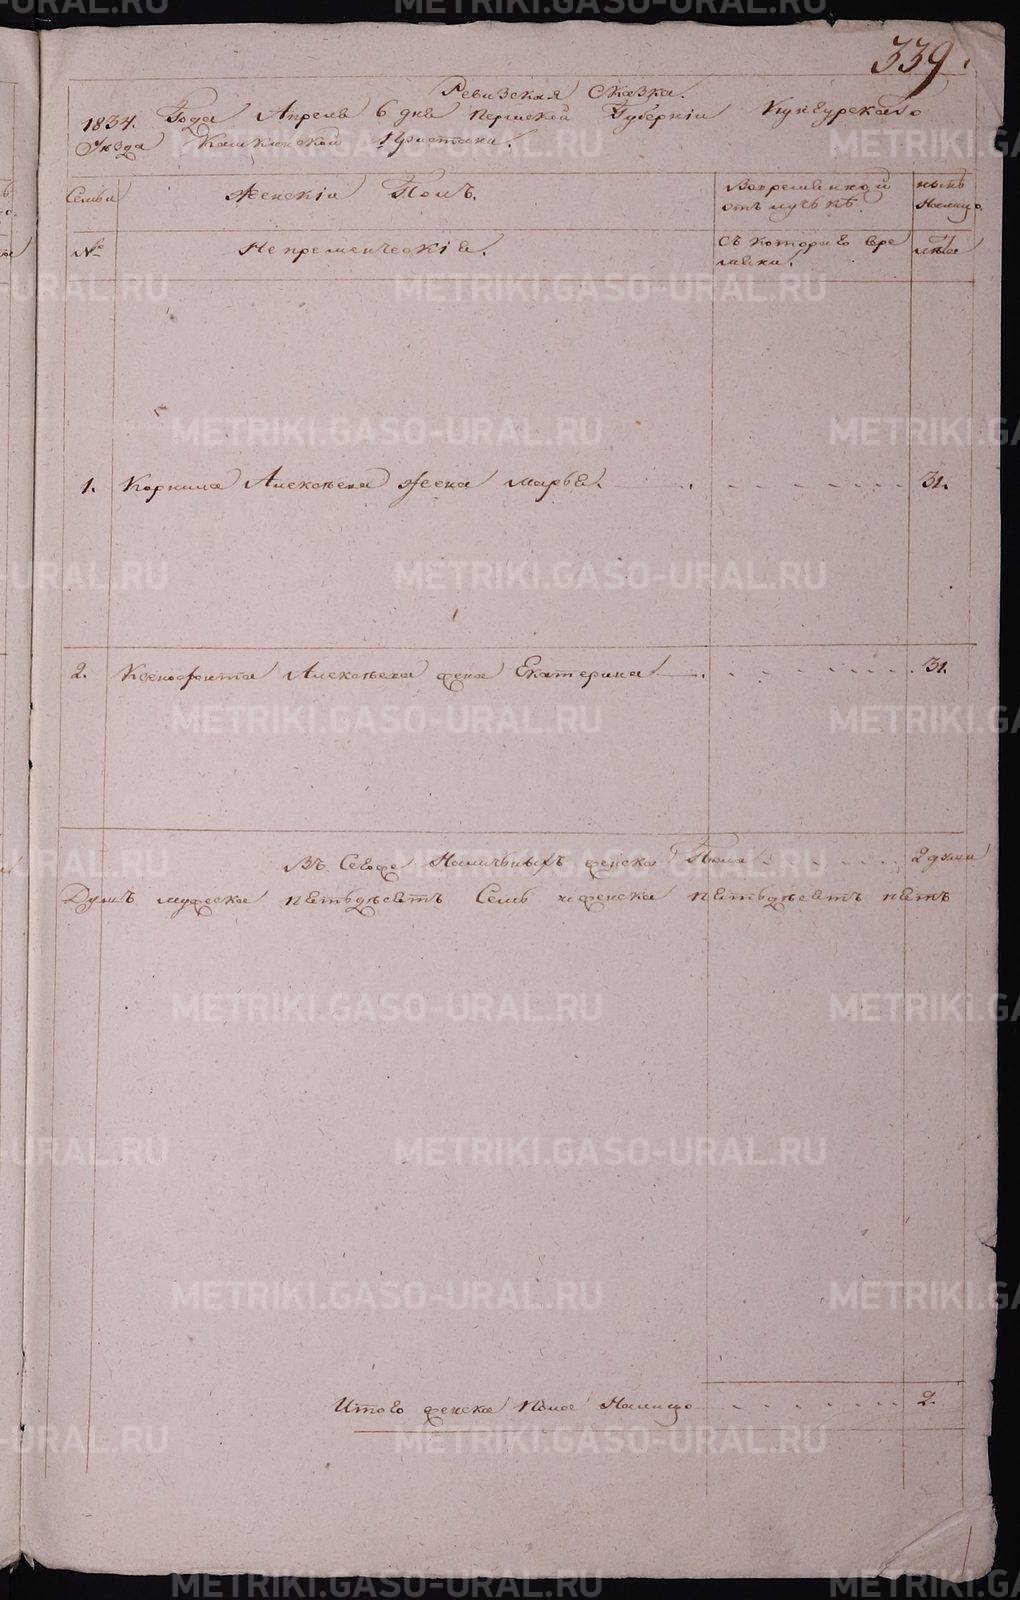 339.
Ревизская Сказка.
1834. Года Апреля 6 дня Пермской Губернiи Кунгурскаго
Уѣзда Кашкинской Пристани.
Семьи
Женскiй Полъ.
Вовременной отлучкѣ.
Нынѣ Налицо.
№
Непременческiе.
съ котораго времени.
Лѣта
1. Корнила Алексѣева Жена марья. 31.
2. Ксенофонта Алексѣева жена Екатерина 31.
Въ Селѣ Наличныхъ женска Пола 2 души
Душъ мужеска пятьдѣсятъ Семь и женска пятьдѣсятъ пять
Итого женска пола Налицо 2.
METRIKI.GASO-URAL.RU